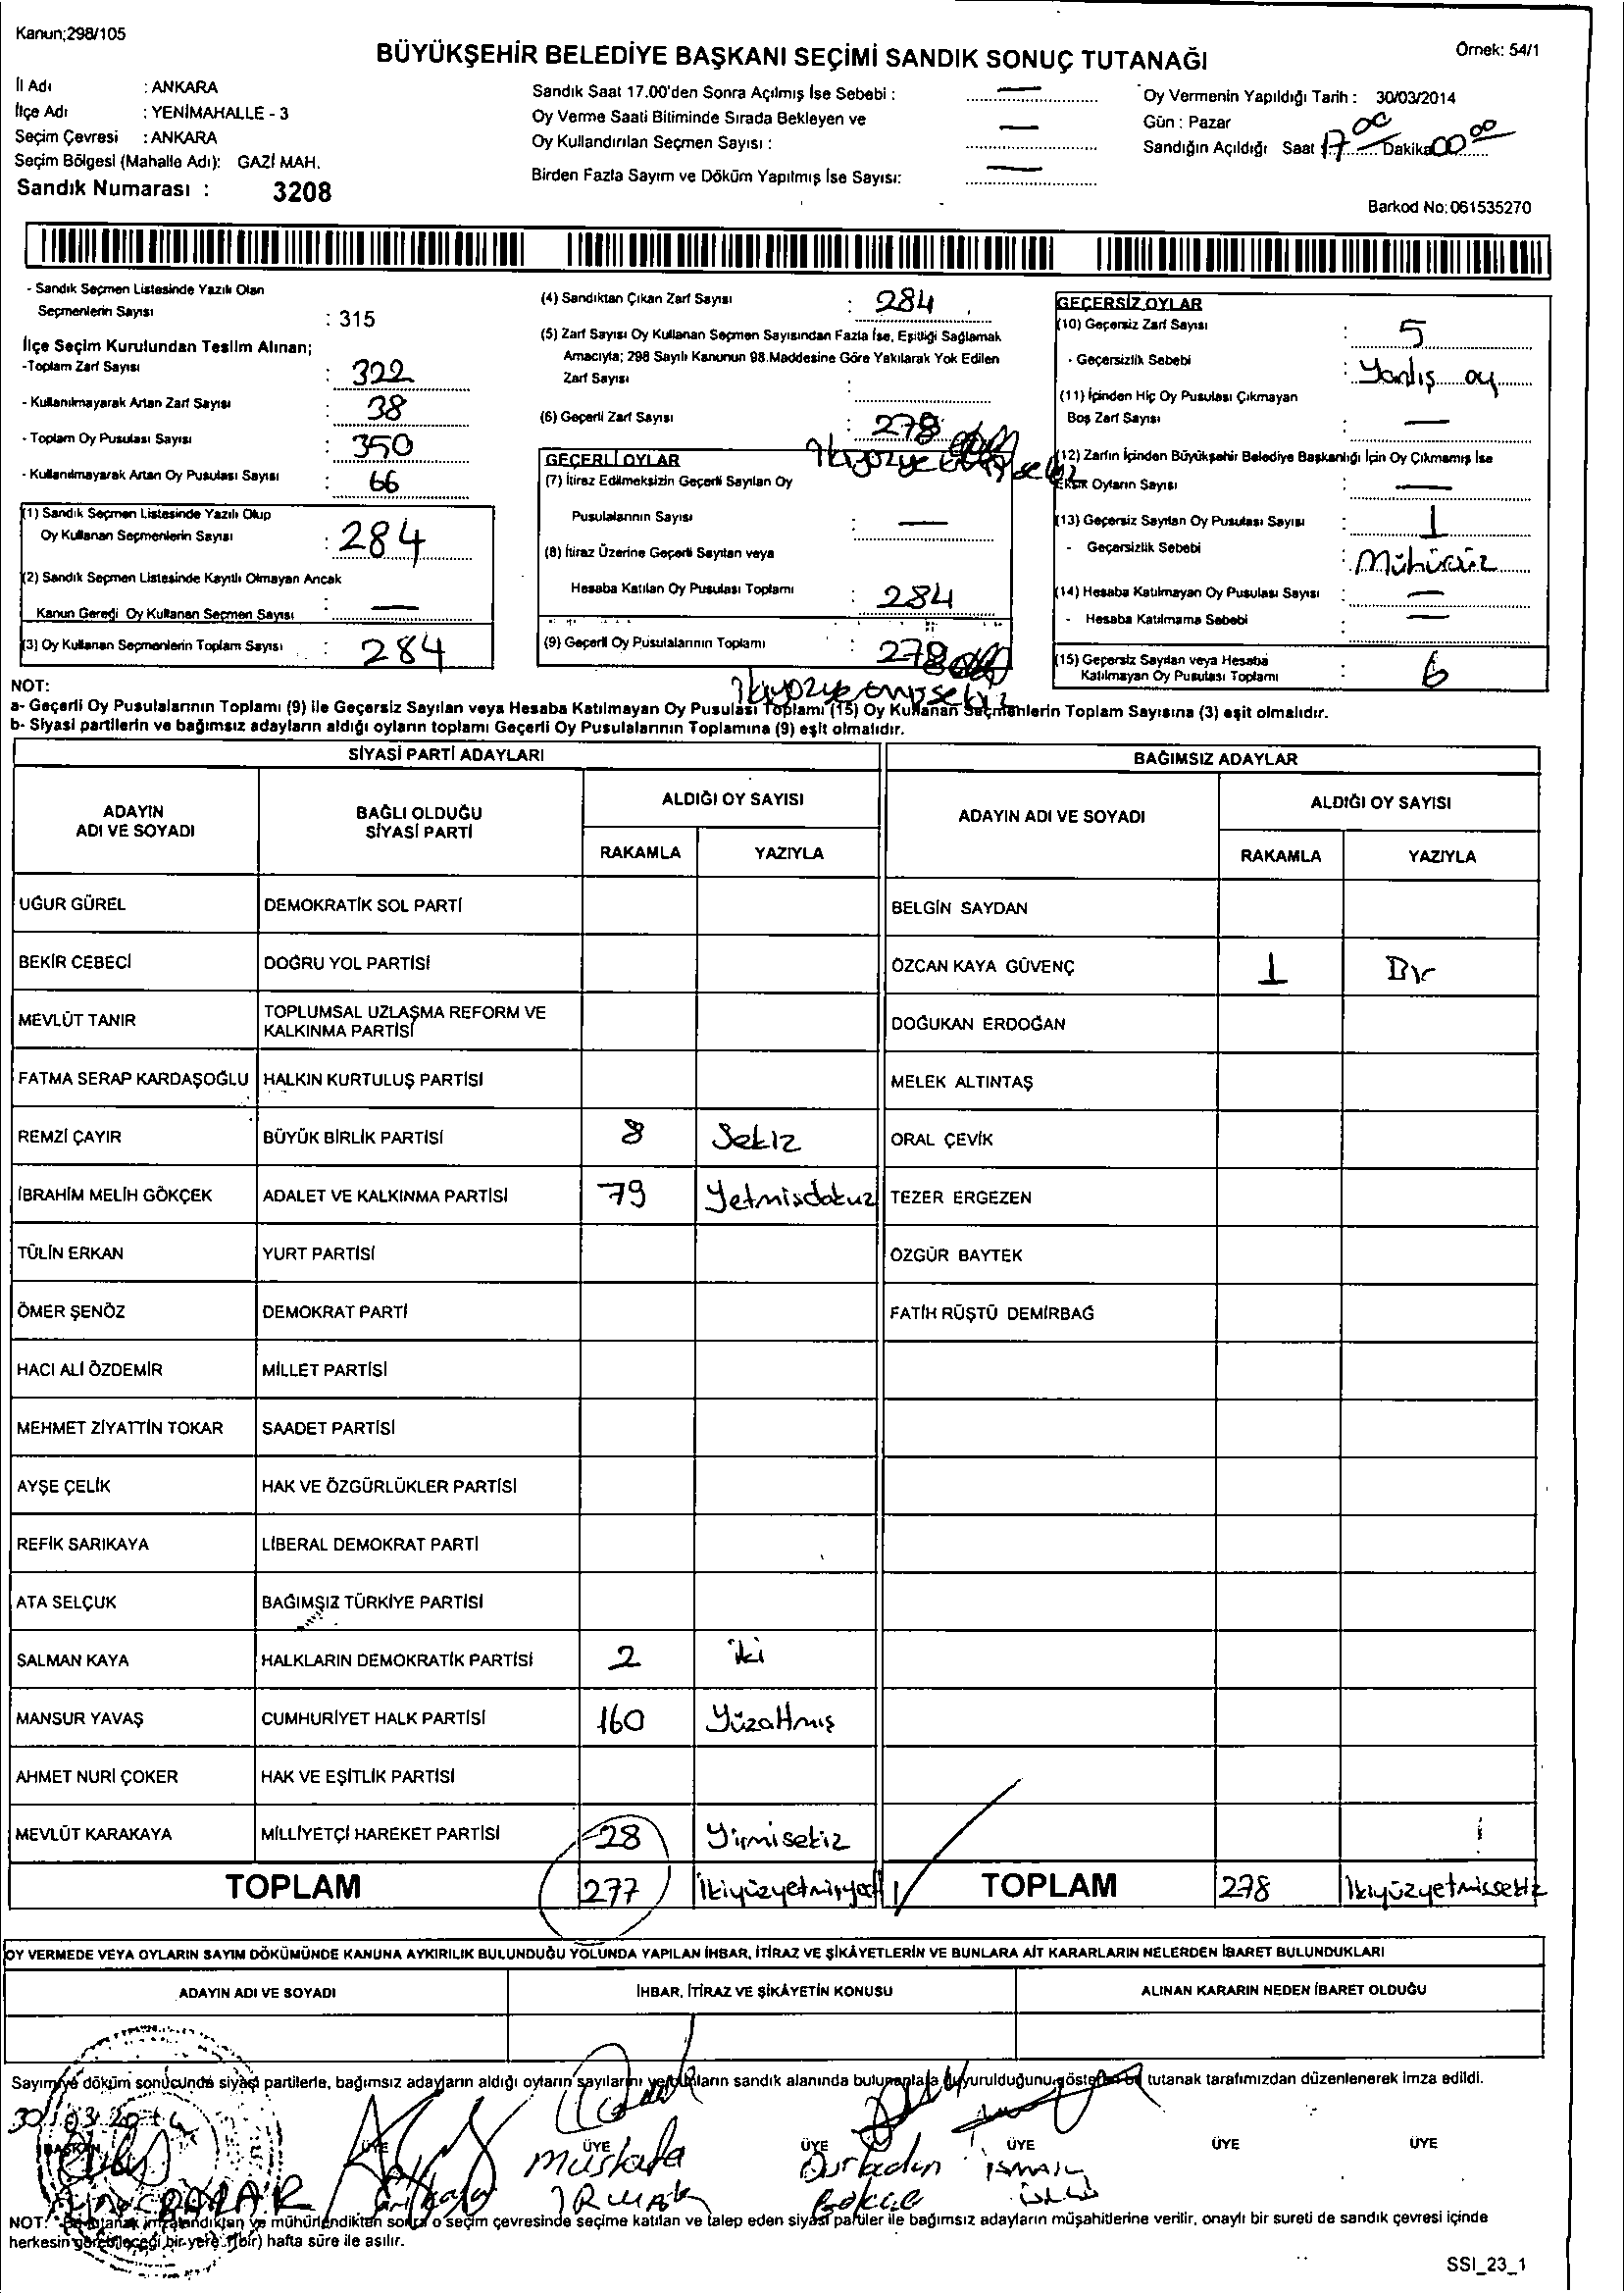 Kanun;298/105
Örnek: 54/1
BÜYÜKŞEHİR BELEDİYE BAŞKANI SEÇİMİ SANDIK SONUÇ TUTANAĞI
İl Adı : ANKARA
İlçe Adı : YENİMAHALLE - 3
Seçim Çevresi : ANKARA
Seçim Bölgesi (Mahalle Adı): GAZİ MAH.
Sandık Numarası : 3208
Sandık Saat 17.00'den Sonra Açılmış İse Sebebi : —
Oy Verme Saati Bitiminde Sırada Bekleyen ve
Oy Kullandırılan Seçmen Sayısı : —
Birden Fazla Sayım ve Döküm Yapılmış İse Sayısı: —
Oy Vermenin Yapıldığı Tarih : 30/03/2014
Gün : Pazar
Sandığın Açıldığı Saat 17 00 Dakika 00 00
Barkod No:061535270
- Sandık Seçmen Listesinde Yazılı Olan
Seçmenlerin Sayısı : 315
İlçe Seçim Kurulundan Teslim Alınan;
-Toplam Zarf Sayısı : 322
- Kullanılmayarak Artan Zarf Sayısı : 38
- Toplam Oy Pusulası Sayısı : 350
- Kullanılmayarak Artan Oy Pusulası Sayısı : 66
(1) Sandık Seçmen Listesinde Yazılı Olup
Oy Kullanan Seçmenlerin Sayısı : 284
(2) Sandık Seçmen Listesinde Kayıtlı Olmayan Ancak
Kanun Gereği Oy Kullanan Seçmen Sayısı : —
(3) Oy Kullanan Seçmenlerin Toplam Sayısı : 284
(4) Sandıktan Çıkan Zarf Sayısı : 284
(5) Zarf Sayısı Oy Kullanan Seçmen Sayısından Fazla İse, Eşitliği Sağlamak
Amacıyla; 298 Sayılı Kanunun 98.Maddesine Göre Yakılarak Yok Edilen
Zarf Sayısı :
(6) Geçerli Zarf Sayısı : 278
GEÇERLİ OYLAR
(7) İtiraz Edilmeksizin Geçerli Sayılan Oy
Pusulalarının Sayısı : —
(8) İtiraz Üzerine Geçerli Sayılan veya
Hesaba Katılan Oy Pusulası Toplamı : 284
(9) Geçerli Oy Pusulalarının Toplamı : 278
GEÇERSİZ OYLAR
(10) Geçersiz Zarf Sayısı : 5
- Geçersizlik Sebebi : Yanlış oy
(11) İçinden Hiç Oy Pusulası Çıkmayan
Boş Zarf Sayısı : —
(12) Zarfın İçinden Büyükşehir Belediye Başkanlığı İçin Oy Çıkmamış İse
Eksik Oyların Sayısı : —
(13) Geçersiz Sayılan Oy Pusulası Sayısı : 1
- Geçersizlik Sebebi : Mühürsüz
(14) Hesaba Katılmayan Oy Pusulası Sayısı : —
- Hesaba Katılmama Sebebi : —
(15) Geçersiz Sayılan veya Hesaba
Katılmayan Oy Pusulası Toplamı : 6
NOT:
a- Geçerli Oy Pusulalarının Toplamı (9) ile Geçersiz Sayılan veya Hesaba Katılmayan Oy Pusulası Toplamı (15) Oy Kullanan Seçmenlerin Toplam Sayısına (3) eşit olmalıdır.
b- Siyasi partilerin ve bağımsız adayların aldığı oyların toplamı Geçerli Oy Pusulalarının Toplamına (9) eşit olmalıdır.
SİYASİ PARTİ ADAYLARI BAĞIMSIZ ADAYLAR
ADAYIN ADI VE SOYADI BAĞLI OLDUĞU SİYASİ PARTİ ALDIĞI OY SAYISI ADAYIN ADI VE SOYADI ALDIĞI OY SAYISI
RAKAMLA YAZIYLA RAKAMLA YAZIYLA
UĞUR GÜREL DEMOKRATİK SOL PARTİ BELGİN SAYDAN
BEKİR CEBECİ DOĞRU YOL PARTİSİ ÖZCAN KAYA GÜVENÇ 1 Bir
MEVLÜT TANIR TOPLUMSAL UZLAŞMA REFORM VE KALKINMA PARTİSİ DOĞUKAN ERDOĞAN
FATMA SERAP KARDAŞOĞLU HALKIN KURTULUŞ PARTİSİ MELEK ALTINTAŞ
REMZİ ÇAYIR BÜYÜK BİRLİK PARTİSİ 8 Sekiz ORAL ÇEVİK
İBRAHİM MELİH GÖKÇEK ADALET VE KALKINMA PARTİSİ 79 Yetmisdokuz TEZER ERGEZEN
TÜLİN ERKAN YURT PARTİSİ ÖZGÜR BAYTEK
ÖMER ŞENÖZ DEMOKRAT PARTİ FATİH RÜŞTÜ DEMİRBAĞ
HACI ALİ ÖZDEMİR MİLLET PARTİSİ
MEHMET ZİYATTİN TOKAR SAADET PARTİSİ
AYŞE ÇELİK HAK VE ÖZGÜRLÜKLER PARTİSİ
REFİK SARIKAYA LİBERAL DEMOKRAT PARTİ
ATA SELÇUK BAĞIMSIZ TÜRKİYE PARTİSİ
SALMAN KAYA HALKLARIN DEMOKRATİK PARTİSİ 2 iki
MANSUR YAVAŞ CUMHURİYET HALK PARTİSİ 160 Yüzaltmış
AHMET NURİ ÇOKER HAK VE EŞİTLİK PARTİSİ
MEVLÜT KARAKAYA MİLLİYETÇİ HAREKET PARTİSİ 28 Yirmisekiz
TOPLAM 277 TOPLAM 278 İkiyüzyetmissekiz
OY VERMEDE VEYA OYLARIN SAYIM DÖKÜMÜNDE KANUNA AYKIRILIK BULUNDUĞU YOLUNDA YAPILAN İHBAR, İTİRAZ VE ŞİKÂYETLERİN VE BUNLARA AİT KARARLARIN NELERDEN İBARET BULUNDUKLARI
ADAYIN ADI VE SOYADI İHBAR, İTİRAZ VE ŞİKÂYETİN KONUSU ALINAN KARARIN NEDEN İBARET OLDUĞU
Sayım ve döküm sonucunda siyasi partilerle, bağımsız adayların aldığı oyların sayılarını ve bunların sandık alanında bulunanlara duyurulduğunu gösteren bu tutanak tarafımızdan düzenlenerek imza edildi.
30/03/2014
BAŞKAN ÜYE ÜYE ÜYE ÜYE ÜYE ÜYE
Mustafa Durkadın İSMAİL
IRMAK Gökçe ÜNLÜ
NOT: Bu tutanak imzalandıktan ve mühürlendikten sonra o seçim çevresinde seçime katılan ve talep eden siyasi partiler ile bağımsız adayların müşahitlerine verilir, onaylı bir sureti de sandık çevresi içinde
herkesin görebileceği bir yere 1(bir) hafta süre ile asılır.
SSI_23_1